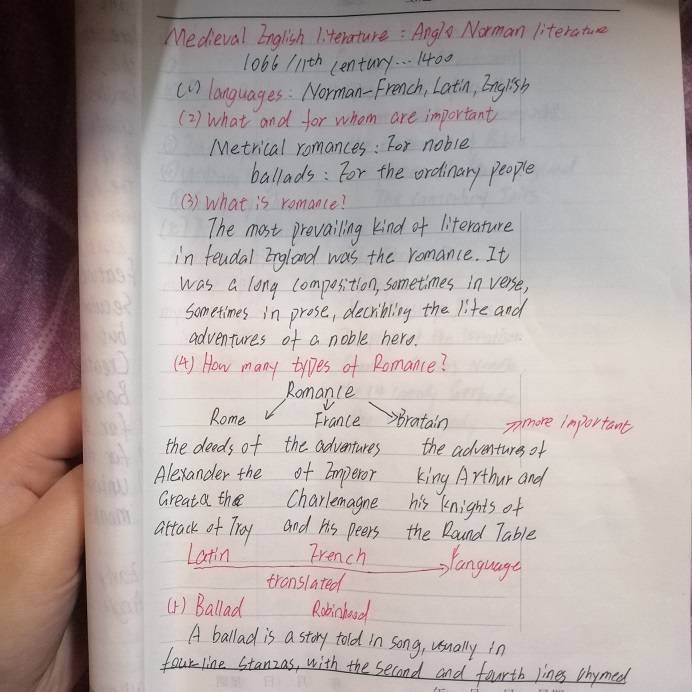 Medieval English literature : Anglo Norman literature
1066 /11th century...1400
(1) languages: Norman-French, Latin, English
(2) What and for whom are important
Metrical romances : For noble
ballads : For the ordinary people
(3) What is romance?
The most prevailing kind of literature
in feudal England was the romance. It
was a long composition, sometimes in verse,
sometimes in prose, decribling the life and
adventures of a noble hero.
(4) How many types of Romance?
Romance
Rome France Bratain more important
the deeds of the adventures the adventures of
Alexander the of Emperor king Arthur and
Great a the Charlemagne his knights of
attack of Troy and his peers the Round Table
Latin French language
translated
Ballad Robinhood
A ballad is a story told in song, usually in
four-line stanzas, with the second and fourth lines rhymed